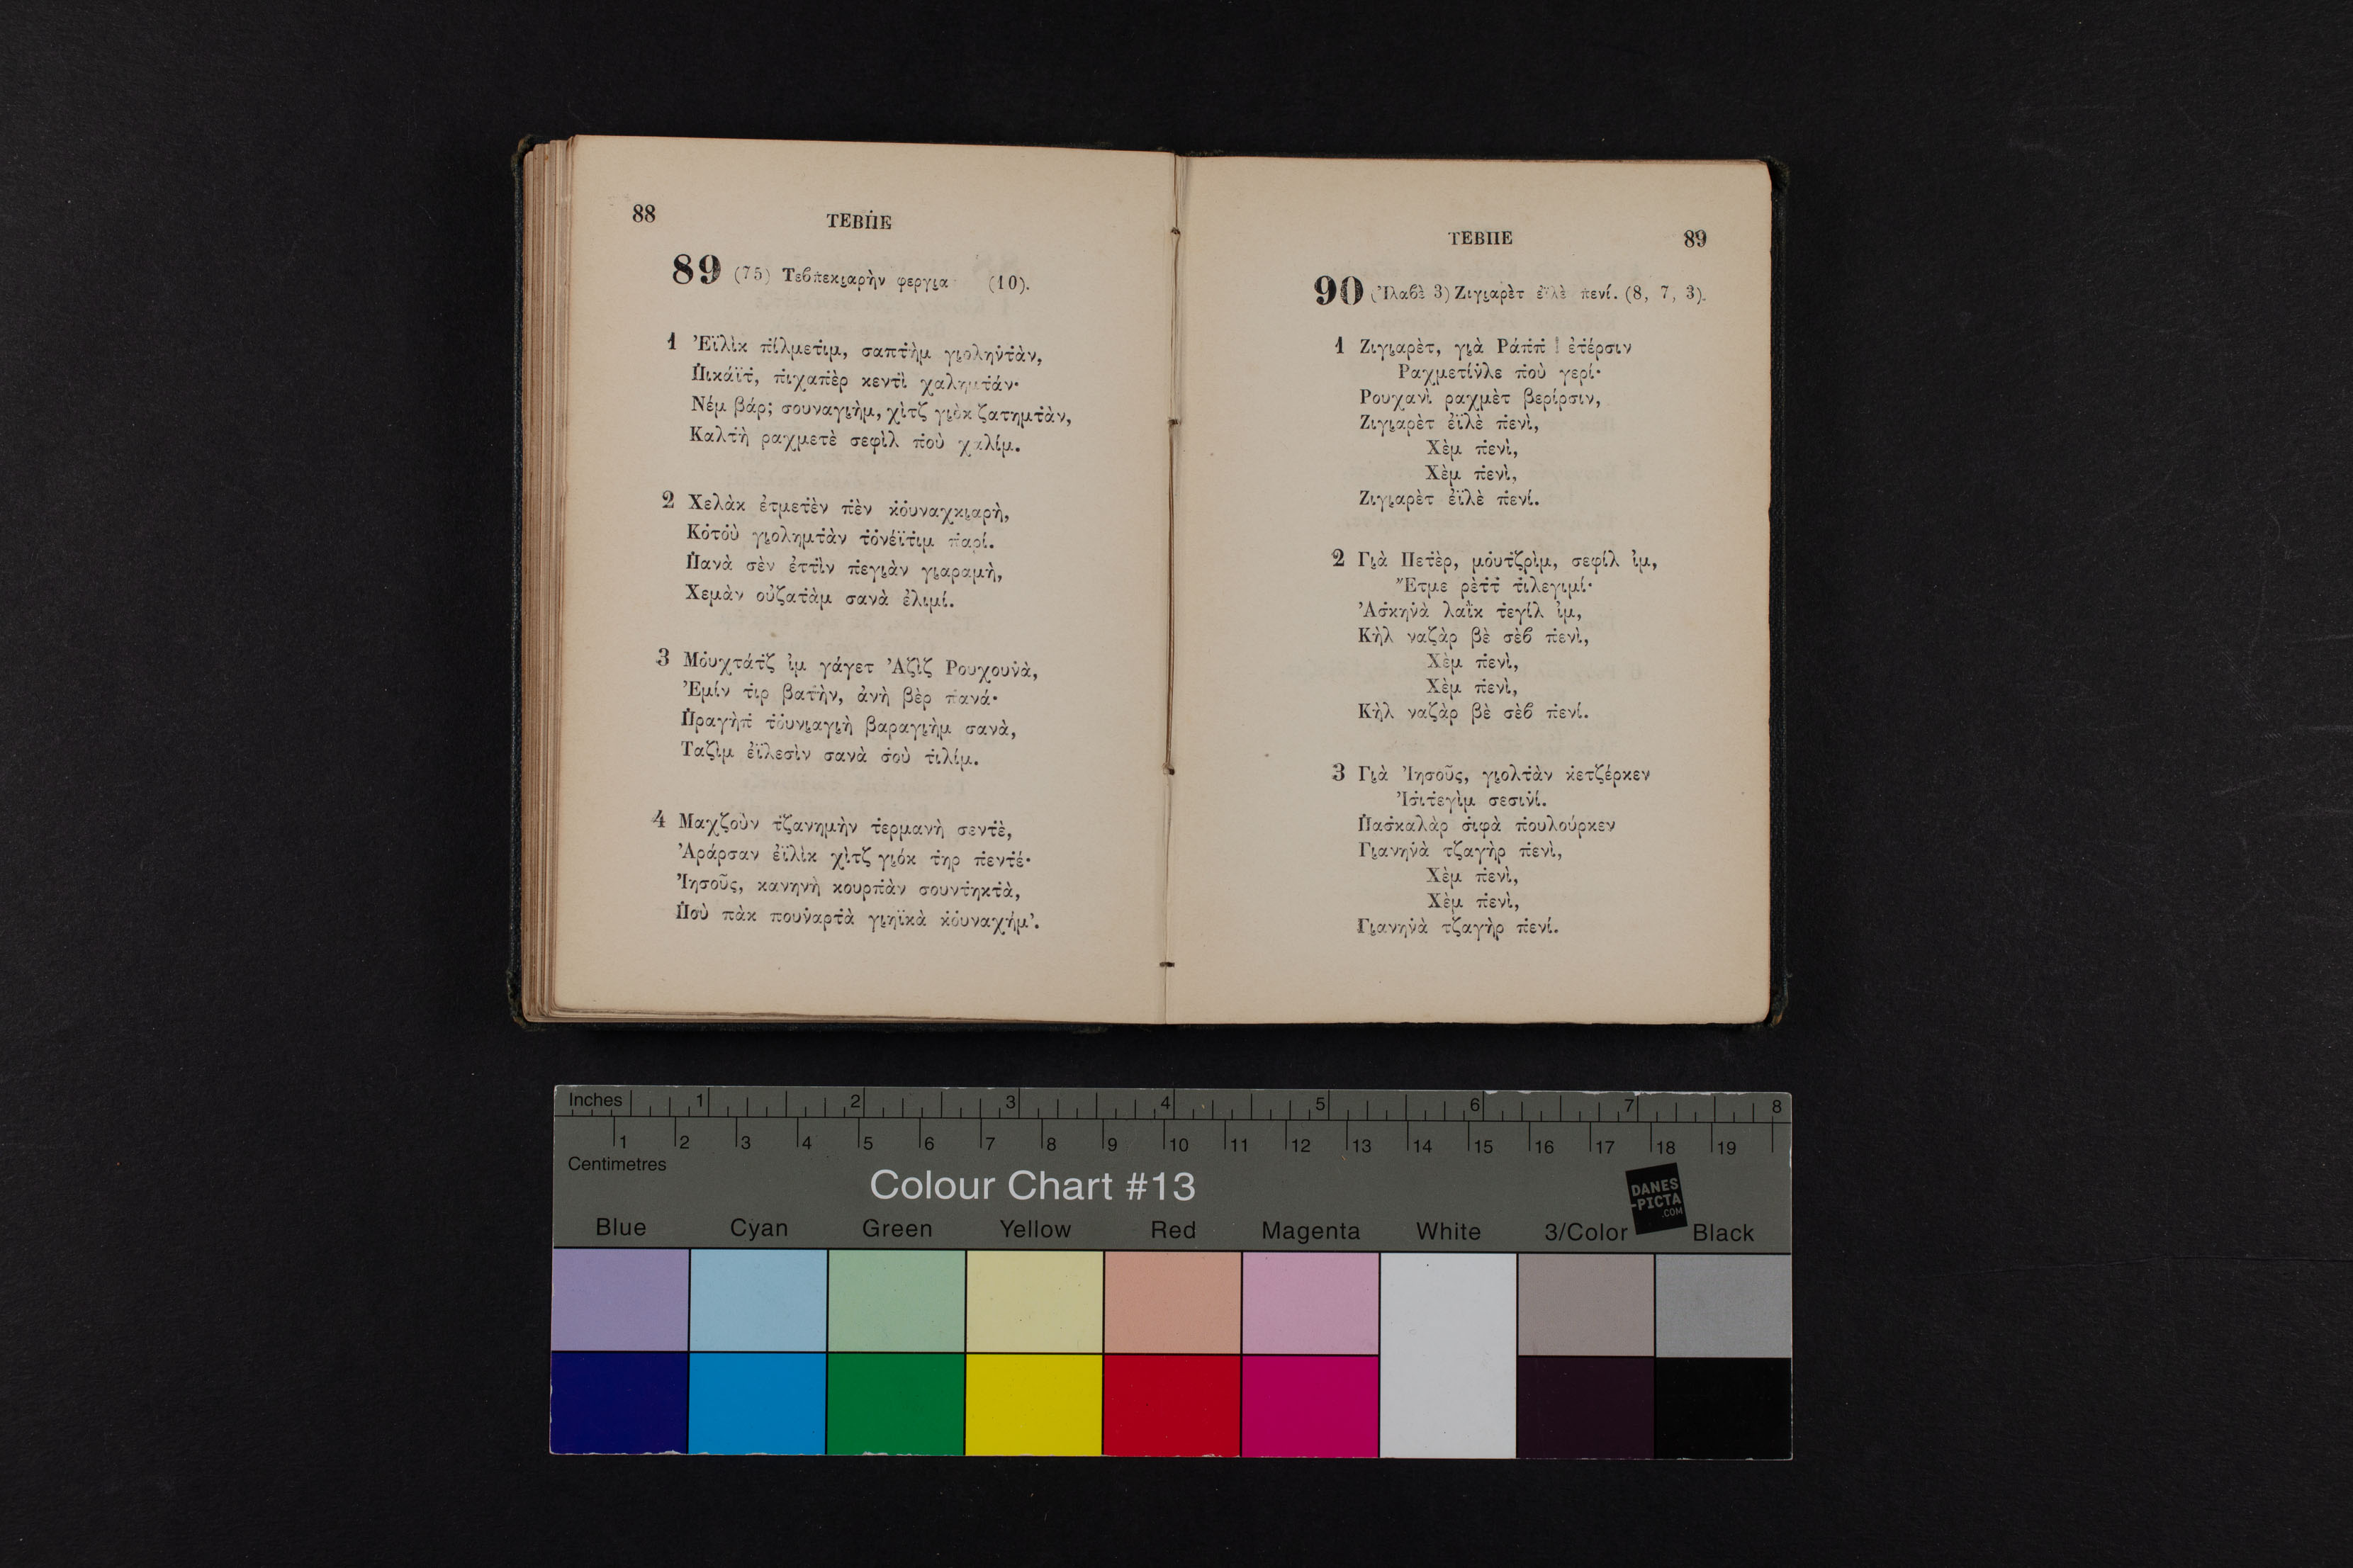 88
ΤΕΒΠ̇Ε
89 (75) Τεϐπ̇εκι̯αρὴν φεργι̯α (10).
1 Ἐϊλὶκ π̇ίλμετ̇ιμ, σαπτ̇ὴμ γι̯οληὐτ̇ὰν,
Π̇ικάϊτ̇, π̇ιχαπ̇ὲρ κεντὶ χαλημτ̇άν·
Νέμ βάρ; σουναγι̯ὴμ, χὶτζ γι̯ὸκ ζατημτ̇ὰν,
Καλτ̇ὴ ραχμετὲ σεφὶλ π̇οὺ χαλίμ.
2 Χελὰκ ἐτμετ̇ὲν π̇ὲν κ̇ο̇υναχκι̯αρὴ,
Κο̇το̇ὺ γι̯ολημτ̇ὰν τ̇ο̇νέϊτ̇ιμ π̇αρί.
Π̇ανὰ σὲν ἐττ̇ὶν π̇εγι̯ὰν γι̯αραμὴ,
Χεμὰν οὐζατ̇ὰμ σανὰ ἐλιμί.
3 Μο̇υχτάτ̇ζ ἰμ γάγετ Ἀζὶζ Ρουχουν̇ὰ,
Ἐμίν τ̇ιρ βατ̇ὴν, ἀνὴ βὲρ π̇ανά·
Π̇ραγὴπ̇ τ̇ο̇υνι̯αγι̯ὴ βαραγι̯ὴμ σανὰ,
Ταζὶμ ἐϊλεσὶν σανὰ σ̇οὺ τ̇ιλίμ.
4 Μαχζοὺν τ̇ζανημὴν τ̇ερμανὴ σεντ̇ὲ,
Ἀράρσαν ἐϊλὶκ χὶτζ γι̯όκ τ̇ηρ π̇εντ̇έ·
Ἰησοῦς, κανηνὴ κουρπ̇ὰν σουντ̇ηκτ̇ὰ,
Π̇οὺ πὰκ πουν̇αρτ̇ὰ γι̯ηϊκὰ κ̇ο̇υναχήμ’.
ΤΕΒΠΕ
89
90 (Ἰλαϐὲ 3) Ζιγι̯αρὲτ ἐϊλὲ π̇ενί. (8, 7, 3).
1 Ζιγι̯αρὲτ, γι̯ὰ Ράπ̇π̇ ! ἐτ̇έρσιν
Ραχμετίν̇λε π̇οὺ γερί·
Ρουχανὶ ραχμὲτ βερίρσιν,
Ζιγι̯αρὲτ ἐϊλὲ π̇ενὶ,
Χὲμ π̇ενὶ,
Χὲμ π̇ενὶ,
Ζιγι̯αρὲτ ἐϊλὲ π̇ενί.
2 Γι̯ὰ Πετ̇ὲρ, μο̇υτ̇ζρὶμ, σεφίλ ἰμ,
Ἔτμε ρὲτ̇τ̇ τ̇ιλεγιμί·
Ἀσ̇κην̇ὰ λαΐκ τ̇εγίλ ἰμ,
Κὴλ ναζὰρ βὲ σὲϐ π̇ενὶ,
Χὲμ π̇ενὶ,
Χὲμ π̇ενὶ,
Κὴλ ναζὰρ βὲ σὲϐ π̇ενί.
3 Γι̯ὰ Ἰησοῦς, γι̯ολτ̇ὰν κ̇ετζέρκεν
Ἰσ̇ιτ̇εγὶμ σεσιν̇ί.
Π̇ασ̇καλὰρ σ̇ιφὰ π̇ουλούρκεν
Γι̯ανην̇ὰ τζαγὴρ π̇ενὶ,
Χὲμ π̇ενὶ,
Χὲμ π̇ενὶ,
Γι̯ανην̇ὰ τζαγὴρ π̇ενί.
Inches 1 2 3 4 5 6 7 8
1 2 3 4 5 6 7 8 9 10 11 12 13 14 15 16 17 18 19
Centimetres
Colour Chart #13
DANES
-PICTA
.COM
Blue Cyan Green Yellow Red Magenta White 3/Color Black